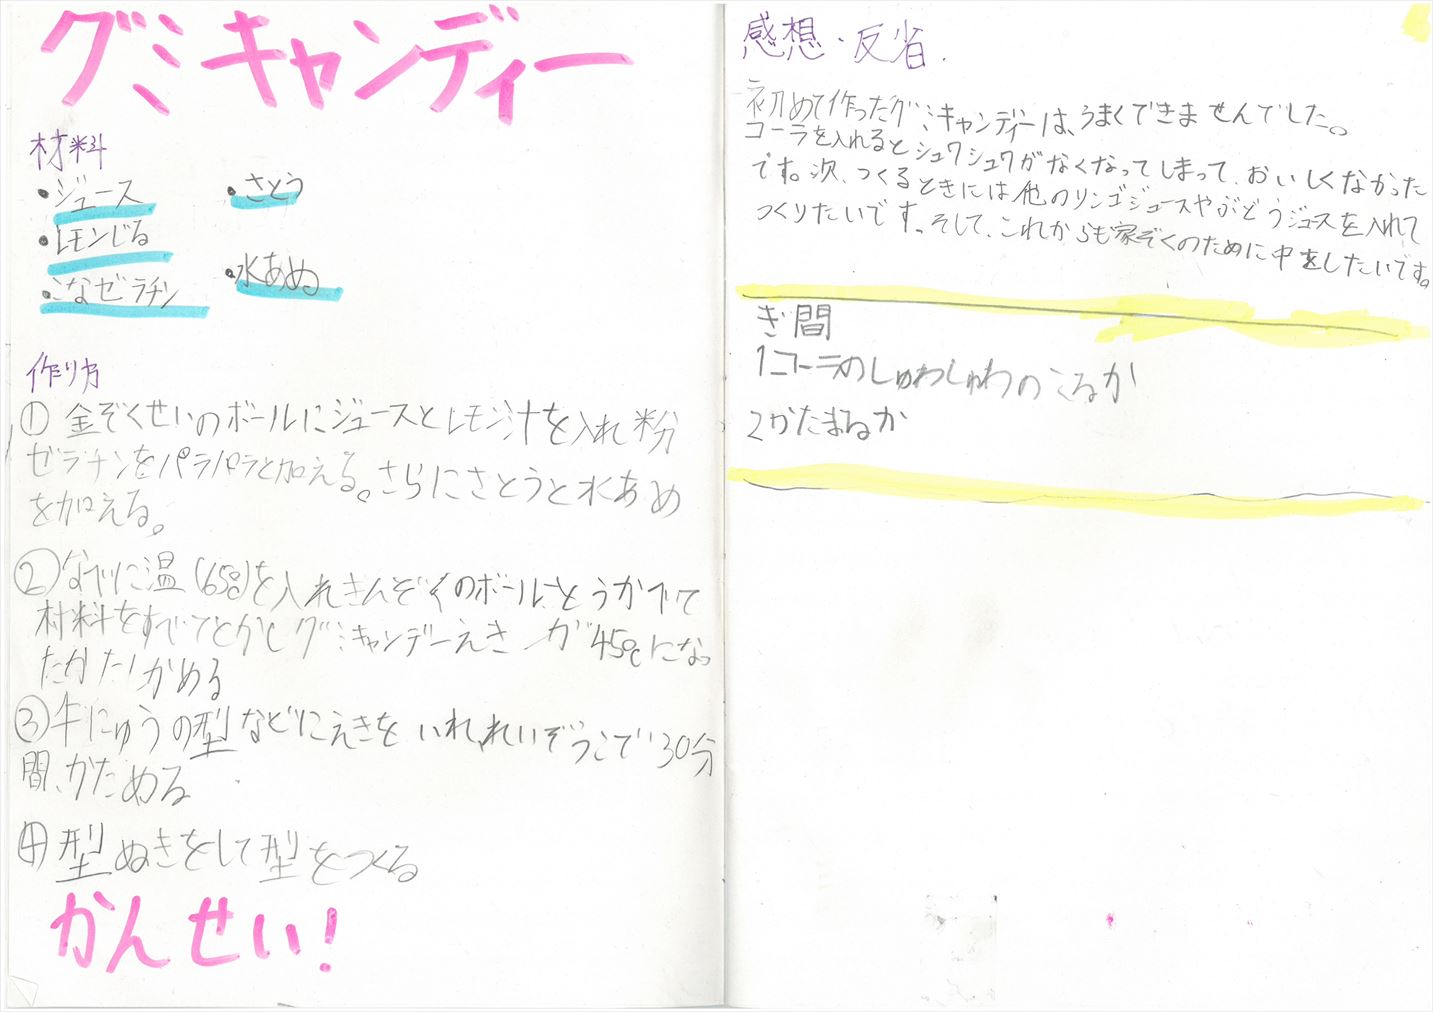 グミキャンディー
材料
・ジュース
・さとう
・レモンじる
・水あめ
・こなゼラチン
作り方
① 金ぞくせいのボールにジュースとレモン汁を入れ粉
ゼラチンをパラパラと加える。さらにさとうと水あめ
を加える。
②なべに温(65℃)を入れきんぞくのボールごとうかべて
材料をすべてとかしグミキャンデーえきが45℃になっ
たかたしかめる
③牛にゅうの型などにえきをいれ、れいぞうこで30分
間、かためる
④型ぬきをして型をつくる
かんせい!
感想・反省.
初めて作ったグミキャンディーは、うまくできませんでした。
コーラを入れるとシュワシュワがなくなってしまって、おいしくなかった
です。次、つくるときには他のリンゴジュースやぶどうジュースを入れて
つくりたいです。そして、これからも家ぞくのために をしたいです。
ぎ間
1コーラのしゅわしゅわのこるか
2かたまるか